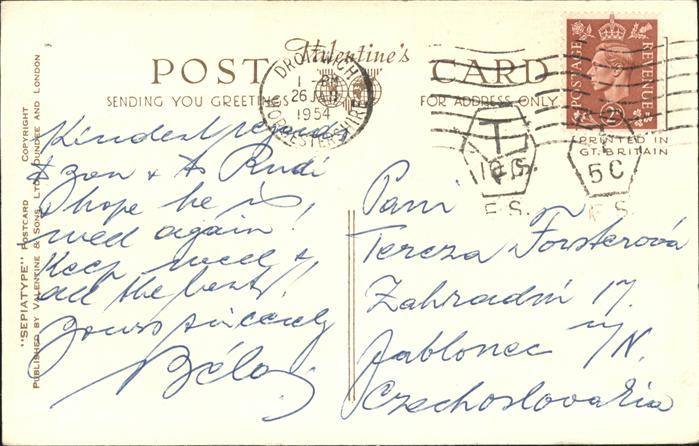 "SEPIATYPE" POSTCARD COPYRIGHT
PUBLISHED BY VALENTINE & SONS, LTD., DUNDEE AND LONDON
Valentine's
POST CARD
SENDING YOU GREETINGS
FOR ADDRESS ONLY
DROITWICH
1 - PM
26 JAN
1954
WORCESTERSHIRE
POSTAGE
REVENUE
2D
PRINTED IN
GT. BRITAIN
T
10 C.
F.S.
5 C
F.S.
Kindest regards
to you & to Rudi
I hope he is
well again!
Keep well &
all the best!
Yours sincerely
Béla
Paní
Tereza Forsterová
Zahradní 17.
Jablonec n/N.
Czechoslovakia